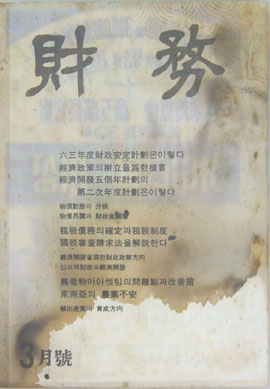 財務
六三年度財政安定計劃은이렇다
經濟政策의樹立을爲한提言
經濟開發五個年計劃의
第二次年度計劃은이렇다
物價動態의 分析
物價昂騰과 財政金融
租税債務의確定과租税制度
國税審査請求法을解說한다
經濟開發을爲한財政政策方向
農産物마아켓팅의問題點과改善策
東南亞의 農業不安
輸出産業의 育成方向
3月號